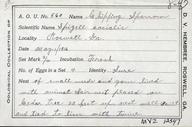 A. O. U. No. 560 Chipping Sparrow
Scientific Name Spizella socialis
Locality Roswell Ga.
Date May
Set Mark Incubation Fresh
No. of Eggs in Set 4 Identity Sure
Nest of small weeds and grass lined
with animal hair not placed on
Cedar tree 10 feet up not well built
and tied to limb with twine
OOLOGICAL COLLECTION OF
D. V. HEMBREE, ROSWELL, GA.